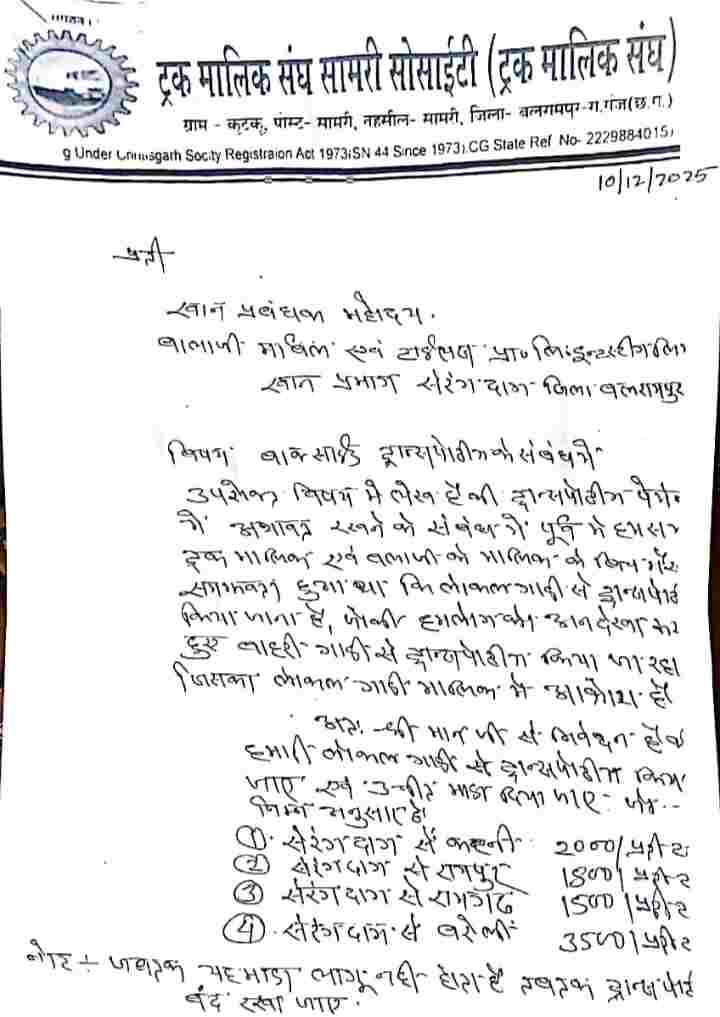 ट्रक मालिक संघ सामरी सोसाईटी (ट्रक मालिक संघ)
ग्राम - कुटकू, पोस्ट- सामरी, तहसील- सामरी, जिला- बलरामपुर-रा.गंज(छ.ग.)
g Under Chhttisgarh Socity Registraion Act 1973(SN 44 Since 1973).CG State Ref No- 2229884015)
10/12/2025
प्रती
खान प्रबंधक महोदय.
बालाजी मार्बल एवं टाईल्स प्रा० लि.
खान प्रभाग सेरंगदाग जिला बलरामपुर
विषय बाक्साईड ट्रान्सपोर्टीग के संबंध में
उपरोक्त विषय में लेख है की ट्रान्सपोर्टीग
में यथावत रखने के संबंध में पूर्व में हमसब
ट्रक मालिक एवं बलाजी के मालिक के बिच में
समझौता हुआ था कि लोकल गाडी से ट्रान्सपोर्ट
किया जाना है, जोकी हमलोग को अनदेखा कर
हुए बाहरी गाडी से ट्रान्सपोर्टीग किया जा रहा
जिसका लोकल गाडी मालिक में आक्रोश है
अतः श्री मान जी से निवेदन है कि
हमारी लोकल गाडी से ट्रान्सपोर्टीग किया
जाए एवं उचीत भाडा दिया जाए जो..
निम्न अनुसार है
① सेरंगदाग से कटनी 2000/प्रतीटन
② सेरंगदाग से रामपुर 1800/प्रतीट
③ सेरंगदाग से रामगढ 1500/प्रतीट
④ सेरंगदाग से बरेली 3500/प्रतीट
नोट ÷ जबतक यह भाडा लागू नही होता है तबतक ट्रान्सपोर्ट
बंद रखा जाए.